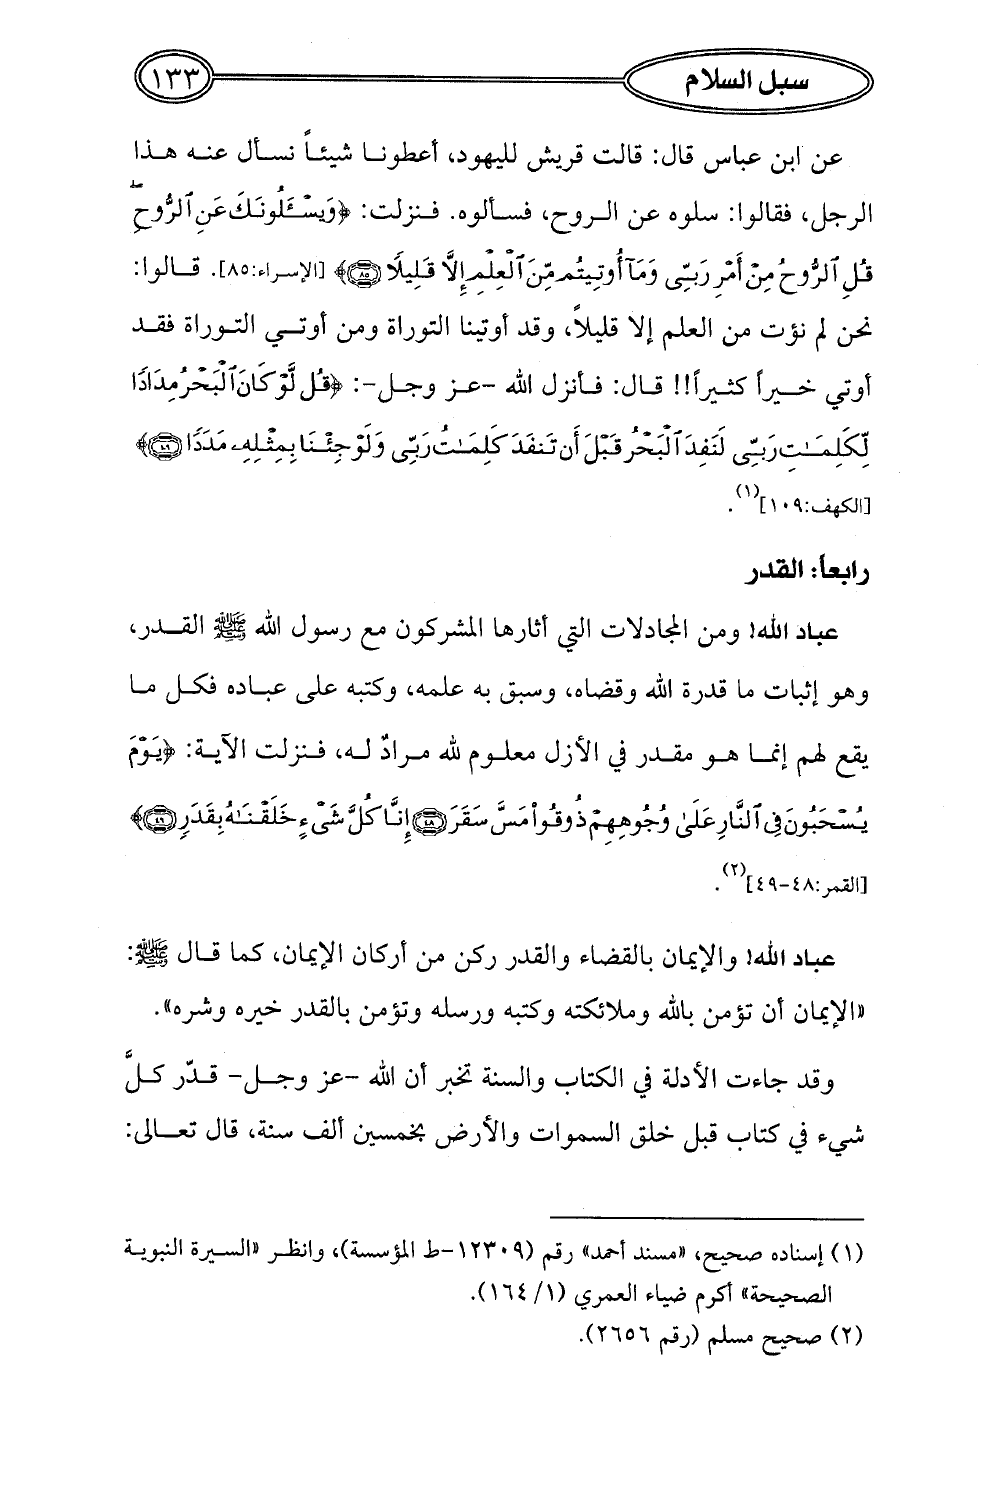 سبل السلام ١٣٣
عن ابن عباس قال: قالت قريش لليهود، أعطونا شيئاً نسأل عنه هذا
الرجل، فقالوا: سلوه عن الروح، فسألوه. فنزلت: ﴿وَيَسْـَٔلُونَكَ عَنِ ٱلرُّوحِ ۖ
قُلِ ٱلرُّوحُ مِنْ أَمْرِ رَبِّى وَمَآ أُوتِيتُم مِّنَ ٱلْعِلْمِ إِلَّا قَلِيلًا ٨٥﴾ [الإسراء:٨٥]. قالوا:
نحن لم نؤت من العلم إلا قليلاً، وقد أوتينا التوراة ومن أوتي التوراة فقد
أوتي خيراً كثيراً!! قال: فأنزل الله -عز وجل-: ﴿قُل لَّوْ كَانَ ٱلْبَحْرُ مِدَادًا
لِّكَلِمَـٰتِ رَبِّى لَنَفِدَ ٱلْبَحْرُ قَبْلَ أَن تَنفَدَ كَلِمَـٰتُ رَبِّى وَلَوْ جِئْنَا بِمِثْلِهِۦ مَدَدًا ١٠٩﴾
[الكهف:١٠٩](١).
رابعاً: القدر
عباد الله! ومن المجادلات التي أثارها المشركون مع رسول الله ﷺ القدر،
وهو إثبات ما قدرة الله وقضاه، وسبق به علمه، وكتبه على عباده فكل ما
يقع لهم إنما هو مقدر في الأزل معلوم لله مرادٌ له، فنزلت الآية: ﴿يَوْمَ
يُسْحَبُونَ فِى ٱلنَّارِ عَلَىٰ وُجُوهِهِمْ ذُوقُوا۟ مَسَّ سَقَرَ ٤٨ إِنَّا كُلَّ شَىْءٍ خَلَقْنَـٰهُ بِقَدَرٍ ٤٩﴾
[القمر:٤٨-٤٩](٢).
عباد الله! والإيمان بالقضاء والقدر ركن من أركان الإيمان، كما قال ﷺ:
«الإيمان أن تؤمن بالله وملائكته وكتبه ورسله وتؤمن بالقدر خيره وشره».
وقد جاءت الأدلة في الكتاب والسنة تخبر أن الله -عز وجل- قدّر كلَّ
شيء في كتاب قبل خلق السموات والأرض بخمسين ألف سنة، قال تعالى:
(١) إسناده صحيح، «مسند أحمد» رقم (١٢٣٠٩-ط المؤسسة)، وانظر «السيرة النبوية
الصحيحة» أكرم ضياء العمري (١/ ١٦٤).
(٢) صحيح مسلم (رقم ٢٦٥٦).